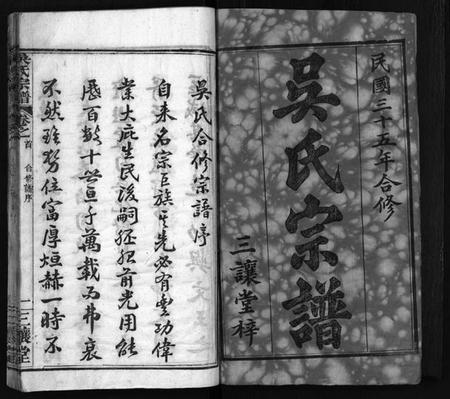 民國三十五年合修
吳氏宗譜
三讓堂梓
吳氏合修宗譜序
自来名宗巨族其先必有豐功偉
業大庇生民後嗣丕承前光用能
歷百數十世亘千萬載而弗衰
不然雖勢位富厚烜赫一時不
吳氏宗譜
卷之首
合修譜序
三讓堂